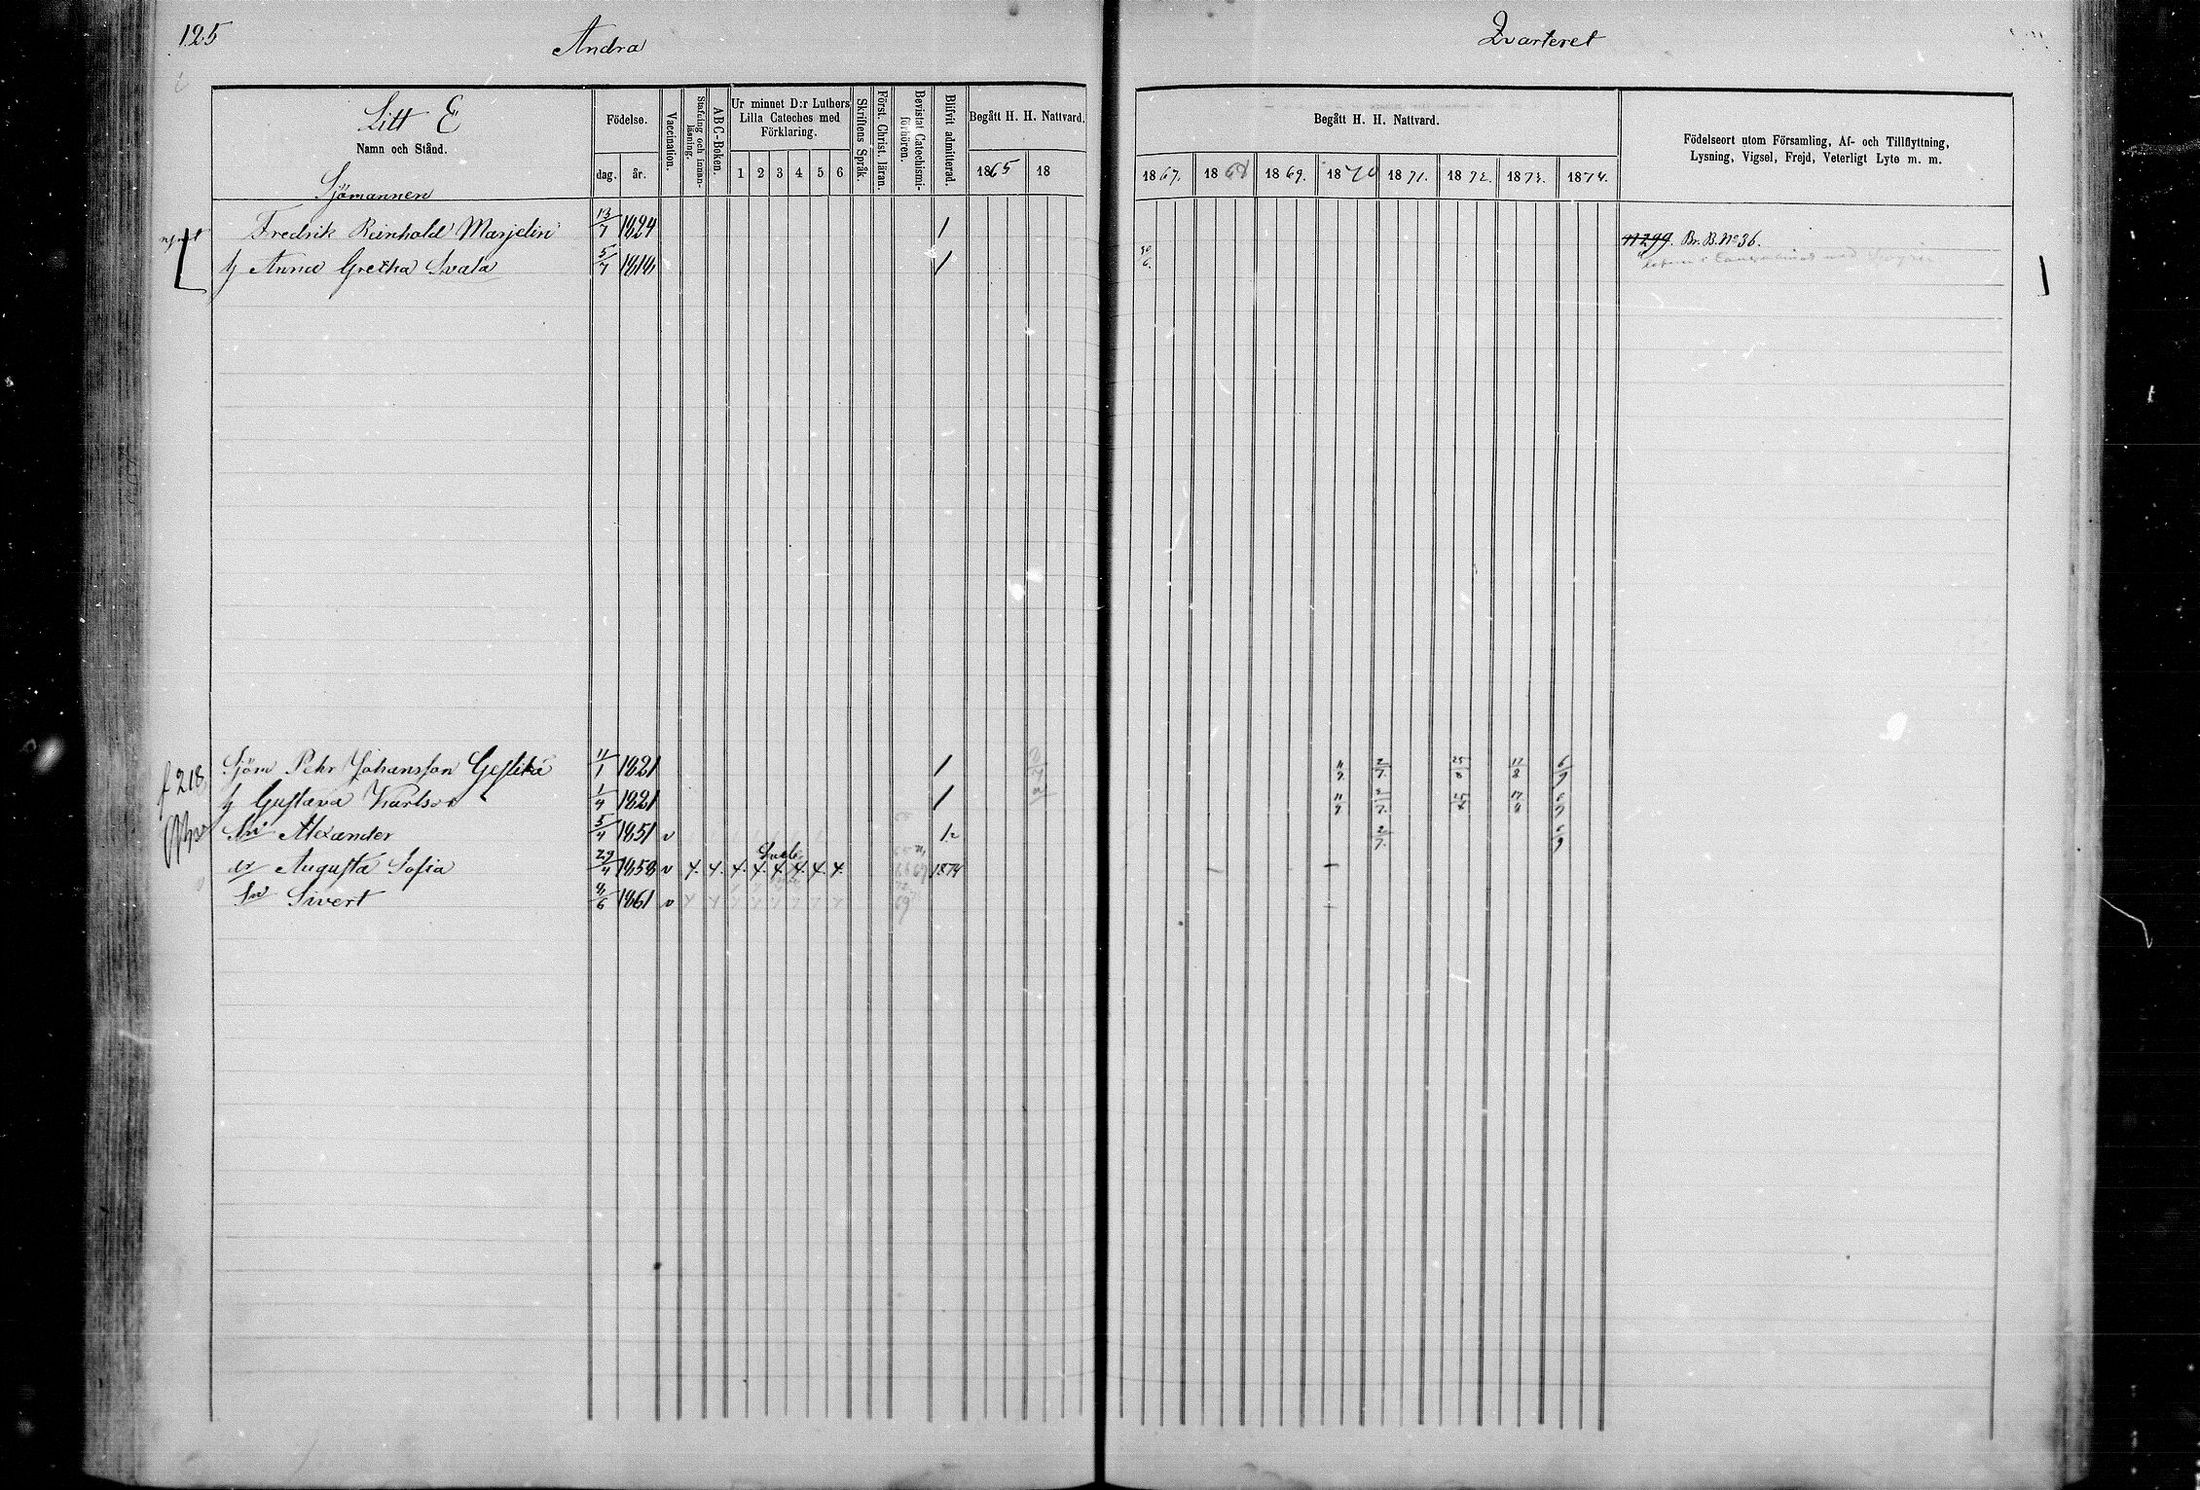 125
Andra
Qvarteret
Litt E
Namn och Stånd.
Födelse.
dag. år.
Vaccination.
Stafning och innanläsning.
ABC-Boken.
Ur minnet D:r Luthers Lilla Cateches med Förklaring.
1 2 3 4 5 6
Skriftens Språk.
Först. Christ. läran.
Bevistat Catechismiförhören.
Blifvit admitterad.
Begått H. H. Nattvard.
1865 18
Begått H. H. Nattvard.
1867. 1868 1869. 1870 1871. 1872. 1873. 1874.
Födelseort utom Församling, Af- och Tillflyttning,
Lysning, Vigsel, Frejd, Veterligt Lyte m. m.
Sjömannen
Fredrik Reinhold Marjelin 13/7 1824 1 n 299. Br. B. No 36.
h Anna Gretha Svala 5/7 1818 1 30/6.
f 218
Sjöm Pehr Johansson Geslika 11/1 1821 1 11/9 2/7. 25/8 17/8 6/9
h Gustava Karlsdr 1/4 1821 1 11/9 2/7. 25/8 17/8 6/9
Sn Alexander 5/4 1851 v 1. 2/7. 6/9
dr Augusta Sofia 29/4 1858 v 4. 4. 4. 4. 4. 4. 4. 4. 1874
Sn Sivert 1861 v 69